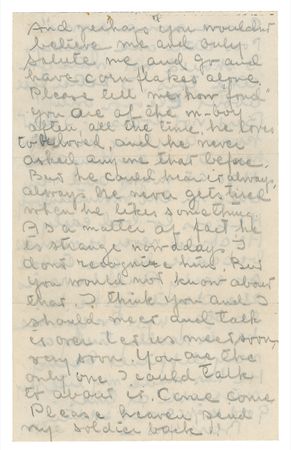 And perhaps you wouldn't
believe me and only
salute me, and go and
have cornflakes alone.
Please tell me how "fond"
you are of the m-boy
often, all the time, he loves
to be loved, and he never
asked anyone that before.
But he could hear it always,
always he never gets tired
when he likes something.
As a matter of fact he
is strange nowadays I
don't recognize him. But
you would not know about
that. I think you and I
should meet and talk
it over. Let us meet soon,
very soon. You are the
only one I could talk
to about it. Come come
Please heaven send
my soldier back!!